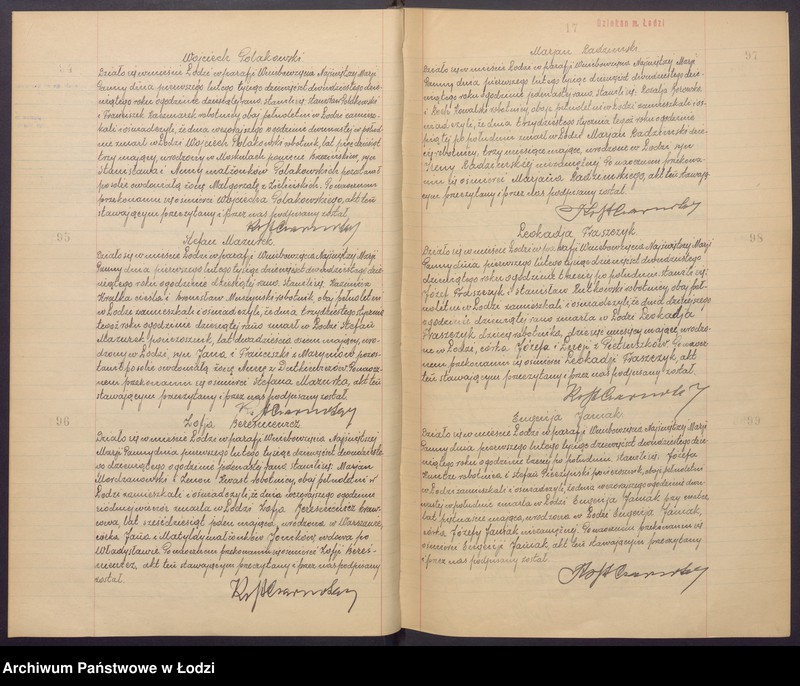 94
Wojciech Polakowski
Działo się w mieście Łodzi w parafji Wniebowzięcia Najświętszej Marji
Panny dnia pierwszego lutego tysiąc dziewięćset dwudziestego dzie-
wiątego roku o godzinie dziesiątej rano. stawili się: Stanisław
i Franciszek Kaczmarek robotnicy obaj pełnoletni w Łodzi zamiesz-
kali i oświadczyli, że dnia wczorajszego o godzinie dwunastej w połud-
nie zmarł w Łodzi Wojciech Polakowski robotnik, lat pięćdziesiąt
trzy mający, urodzony w Moskulach powiecie Brzezińskim, syn
Stanisława i małżonków Polakowskich pozostawił
po sobie owdowiałą żonę Małgorzatę z Zielińskich. Po naocznem
przekonaniu się o śmierci Wojciecha Polakowskiego, akt ten
stawającym przeczytany i przez nas podpisany został.
95
Stefan Mazurek
Działo się w mieście Łodzi w parafji Wniebowzięcia Najświętszej Marji
Panny dnia pierwszego lutego tysiąc dziewięćset dwudziestego dzie-
wiątego roku o godzinie dziesiątej rano. stawili się: Kazimierz
cieśla i Bronisław Muszyński robotnik, obaj pełnoletni
w Łodzi zamieszkali i oświadczyli, że dnia trzydziestego stycznia
tegoż roku o godzinie dziewiątej rano zmarł w Łodzi Stefan
Mazurek pończosznik, lat dwadzieścia osiem mający, uro-
dzony w Łodzi, syn Jana i Franciszki z Marynów pozos-
tawił po sobie owdowiałą żonę z Po naocz-
nem przekonaniu się o śmierci Stefana Mazurka, akt ten
stawającym przeczytany i przez nas podpisany został.
96
Zofja Beresniewicz
Działo się w mieście Łodzi w parafji Wniebowzięcia Najświętszej
Marji Panny dnia pierwszego lutego tysiąc dziewięćset dwudzieste-
go dziewiątego o godzinie jedenastej rano. stawili się: Marjan
i Zenon Kwast robotnicy, obaj pełnoletni w
Łodzi zamieszkali i oświadczyli, że dnia wczorajszego o godzinie
siódmej wieczór zmarła w Łodzi Zofja Beresniewicz kraw-
cowa, lat sześćdziesiąt jeden mająca, urodzona w Warszawie,
córka Jana i Matyldy małżonków wdowa po
Władysławie. Po naocznem przekonaniu się o śmierci Zofji Beres-
niewicz, akt ten stawającym przeczytany i przez nas podpisany
został.
17
Dziekan m. Łodzi
97
Marjan Ladzinski
Działo się w mieście Łodzi w parafji Wniebowzięcia Najświętszej Marji
Panny dnia pierwszego lutego tysiąc dziewięćset dwudziestego dzie-
wiątego roku o godzinie jedenastej rano, stawili się: Rozalja
i Lech Kowalski robotnicy obaj pełnoletni w Łodzi zamieszkali i oś-
wiadczyli, że dnia trzydziestego stycznia tegoż roku o godzinie
piątej po południu zmarł w Łodzi Marjan dzie-
cię robotnicy, trzy miesiące mające, urodzone w Łodzi, syn
Ireny niezamężnej. Po naocznem przekona-
niu się o śmierci Marjana akt ten stawają-
cym przeczytany i przez nas podpisany został.
98
Leokadja Fraszczyk
Działo się w mieście Łodzi w parafji Wniebowzięcia Najświętszej Marji
Panny dnia pierwszego lutego tysiąc dziewięćset dwudziestego
dziewiątego roku o godzinie trzeciej po południu, stawili się:
Józef Fraszczyk i Stanisław robotnicy, obaj peł-
noletni w Łodzi zamieszkali i oświadczyli, że dnia dzisiejszego
o godzinie dziewiątej rano zmarła w Łodzi Leokadja
Fraszczyk dziecię robotnika, dziesięć miesięcy mające, urodzo-
ne w Łodzi, córka Józefa i z Po naocz-
nem przekonaniu się o śmierci Leokadji Fraszczyk, akt
ten stawającym przeczytany i przez nas podpisany został.
99
Eugenja Jamiak
Działo się w mieście Łodzi w parafji Wniebowzięcia Najświętszej Marji
Panny dnia pierwszego lutego tysiąc dziewięćset dwudziestego dzie-
wiątego roku o godzinie trzeciej po południu, stawili się: Józefa
robotnica i Stefan pończosznik, oboje pełnoletni
w Łodzi zamieszkali i oświadczyli, że dnia wczorajszego o godzinie dwu-
nastej w południe zmarła w Łodzi Eugenja Jamiak przy matce
lat mająca, urodzona w Łodzi Eugenja Jamiak,
córka Józefy Jamiak niezamężnej. Po naocznem przekonaniu się
o śmierci Eugenji Jamiak, akt ten stawającym przeczytany
i przez nas podpisany został.
Archiwum Państwowe w Łodzi